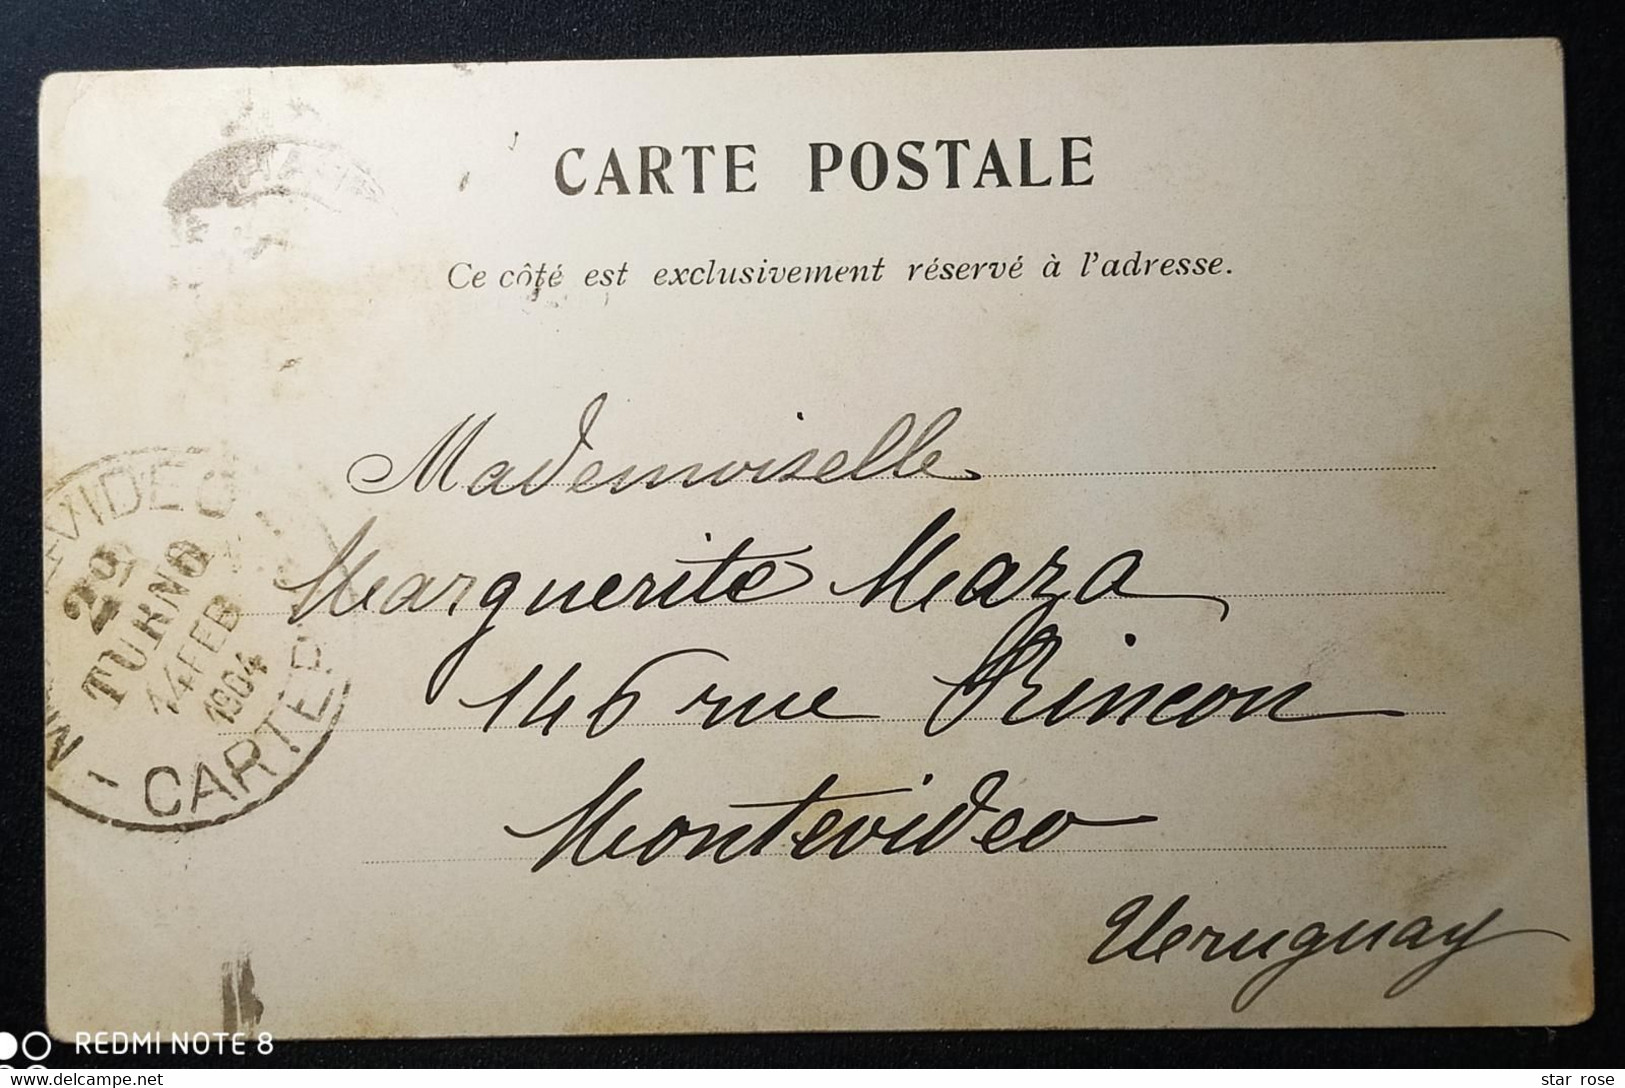 CARTE POSTALE
Ce côté est exclusivement réservé à l'adresse.
Mademoiselle
Marguerite Maza
146 rue Rincon
Montevideo
Uruguay
EVIDEO
2º
TURNO
14 FEB
1904
CARTER
REDMI NOTE 8
star rose